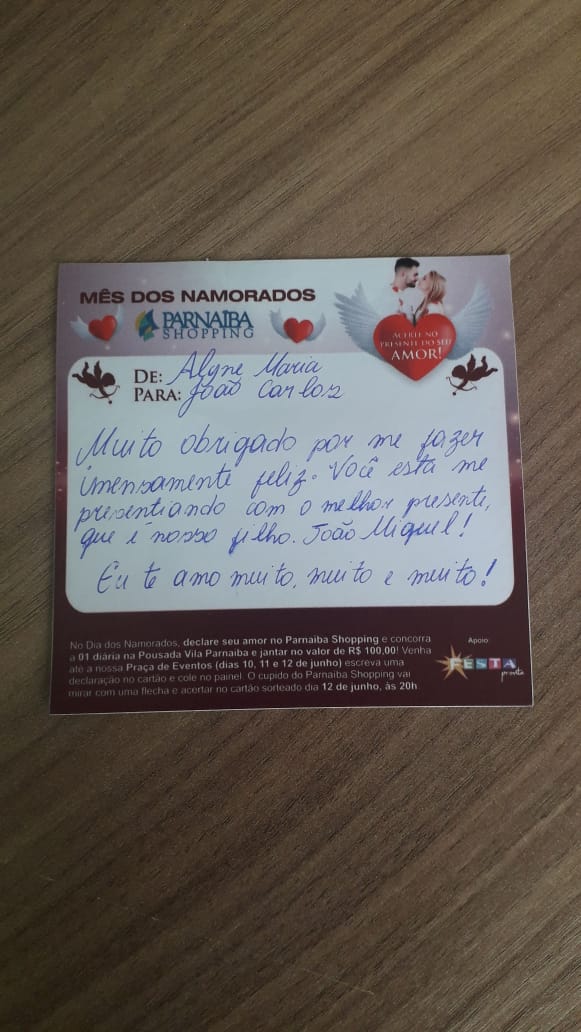 MÊS DOS NAMORADOS
PARNAÍBA
SHOPPING
ACERTE NO
PRESENTE DO SEU
AMOR!
DE: Alyne Maria
PARA: João Carlos
Muito obrigado por me fazer
imensamente feliz. Você está me
presentiando com o melhor presente,
que é nosso filho. João Miguel!
Eu te amo muito, muito e muito!
No Dia dos Namorados, declare seu amor no Parnaíba Shopping e concorra
a 01 diária na Pousada Vila Parnaíba e jantar no valor de R$ 100,00! Venha
até a nossa Praça de Eventos (dias 10, 11 e 12 de junho) escreva uma
declaração no cartão e cole no painel. O cupido do Parnaíba Shopping vai
mirar com uma flecha e acertar no cartão sorteado dia 12 de junho, às 20h.
Apoio:
FESTA
pronta